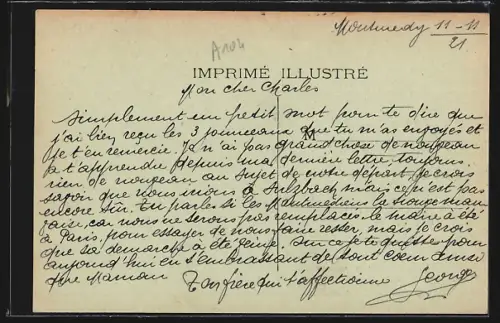 Montmedy 11-11
21
A104
IMPRIMÉ ILLUSTRÉ
Mon cher Charles
Simplement un petit mot pour te dire que
j'ai bien reçu les 3 journeaux que tu m'as envoyés et
je t'en remercie. Je n'ai pas grand chose de nouveau
a t'apprendre depuis ma dernière lettre, toujours
rien de nouveau au sujet de notre départ, je crois
savoir que nous irions à Sulzbach, mais ce n'est pas
encore sûr. Tu parles si les Montmediens la trouve mau
vaise, car nous ne serons pas remplacés. le maire a été
à Paris, pour essayer de nous faire rester, mais je crois
que sa démarche a été veine. Sur ce je te quitte pour
aujourd'hui en t'embrassant de tout cœur ainsi
que Maman
Ton frère qui t'affectionne Georges